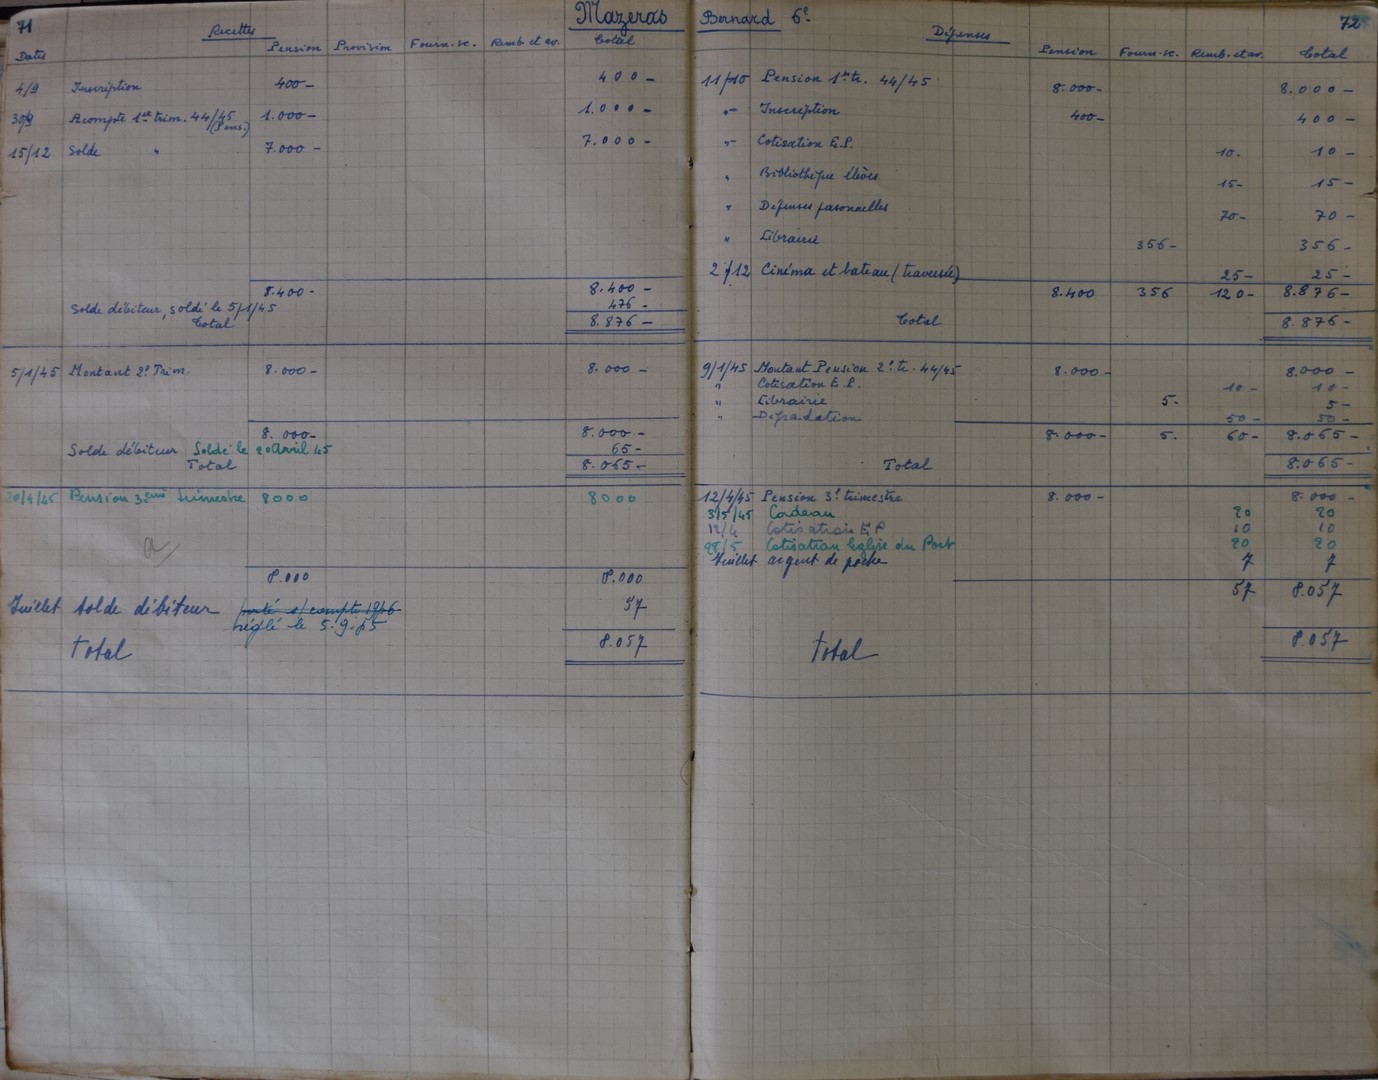 71
Mazeras
Recettes
Dates Pension Provision Fourn. sc. Remb et av. Total
4/9 Inscription 400- 400-
30/9 Acompte 1er trim. 44/45 (Pens.) 1.000- 1.000-
15/12 Solde " 7.000- 7.000-
8.400- 8.400-
Solde débiteur, soldé le 5/1/45 476-
Total 8.876-
5/1/45 Montant 2e Trim. 8.000- 8.000-
8.000- 8.000-
Solde débiteur Soldé le 20 avril 45 65-
Total 8.065-
20/4/45 Pension 3eme trimestre 8000 8000
8.000 8.000
Juillet solde débiteur porté s/ compte 1946 57
réglé le 5.9.45
Total 8.057
Bernard 6e
72
Dépenses
Pension Fourn. sc. Remb. et av. Total
11/10 Pension 1er tr. 44/45 8.000- 8.000-
"- Inscription 400- 400-
"- Cotisation E.P. 10. 10-
" Bibliothèque élèves 15- 15-
" Dépenses personnelles 70- 70-
" Librairie 356- 356-
2/12 Cinéma et bateau (traversée) 25- 25-
8.400 356 120- 8.876-
Total 8.876-
9/1/45 Montant Pension 2e tr. 44/45 8.000- 8.000-
" Cotisation E.P. 10- 10-
" Librairie 5- 5-
" Dégradation 50- 50-
8.000- 5. 60- 8.065-
Total 8.065-
12/4/45 Pension 3e trimestre 8.000- 8.000-
3/5/45 Cordeau 20 20
12/4 Cotisation E P 10 10
28/5 Cotisation Eglise du Port 20 20
Juillet argent de poche 7 7
57 8.057
Total 8.057